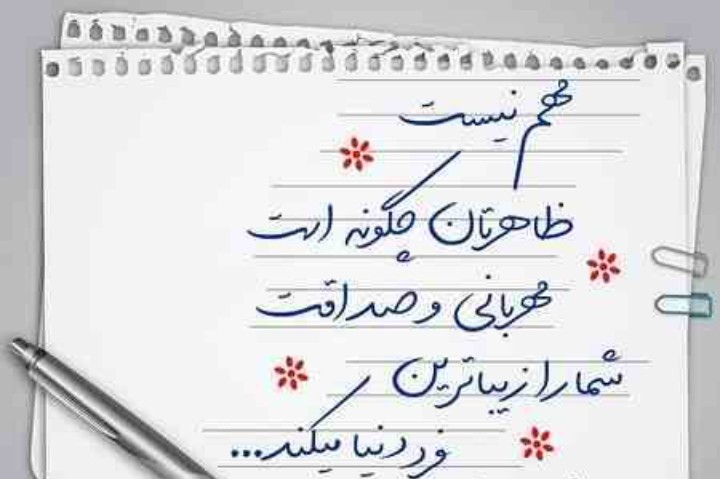 مهم نیست
ظاهرتان چگونه است
مهربانی و صداقت
شما را زیباترین
فرد دنیا میکند...